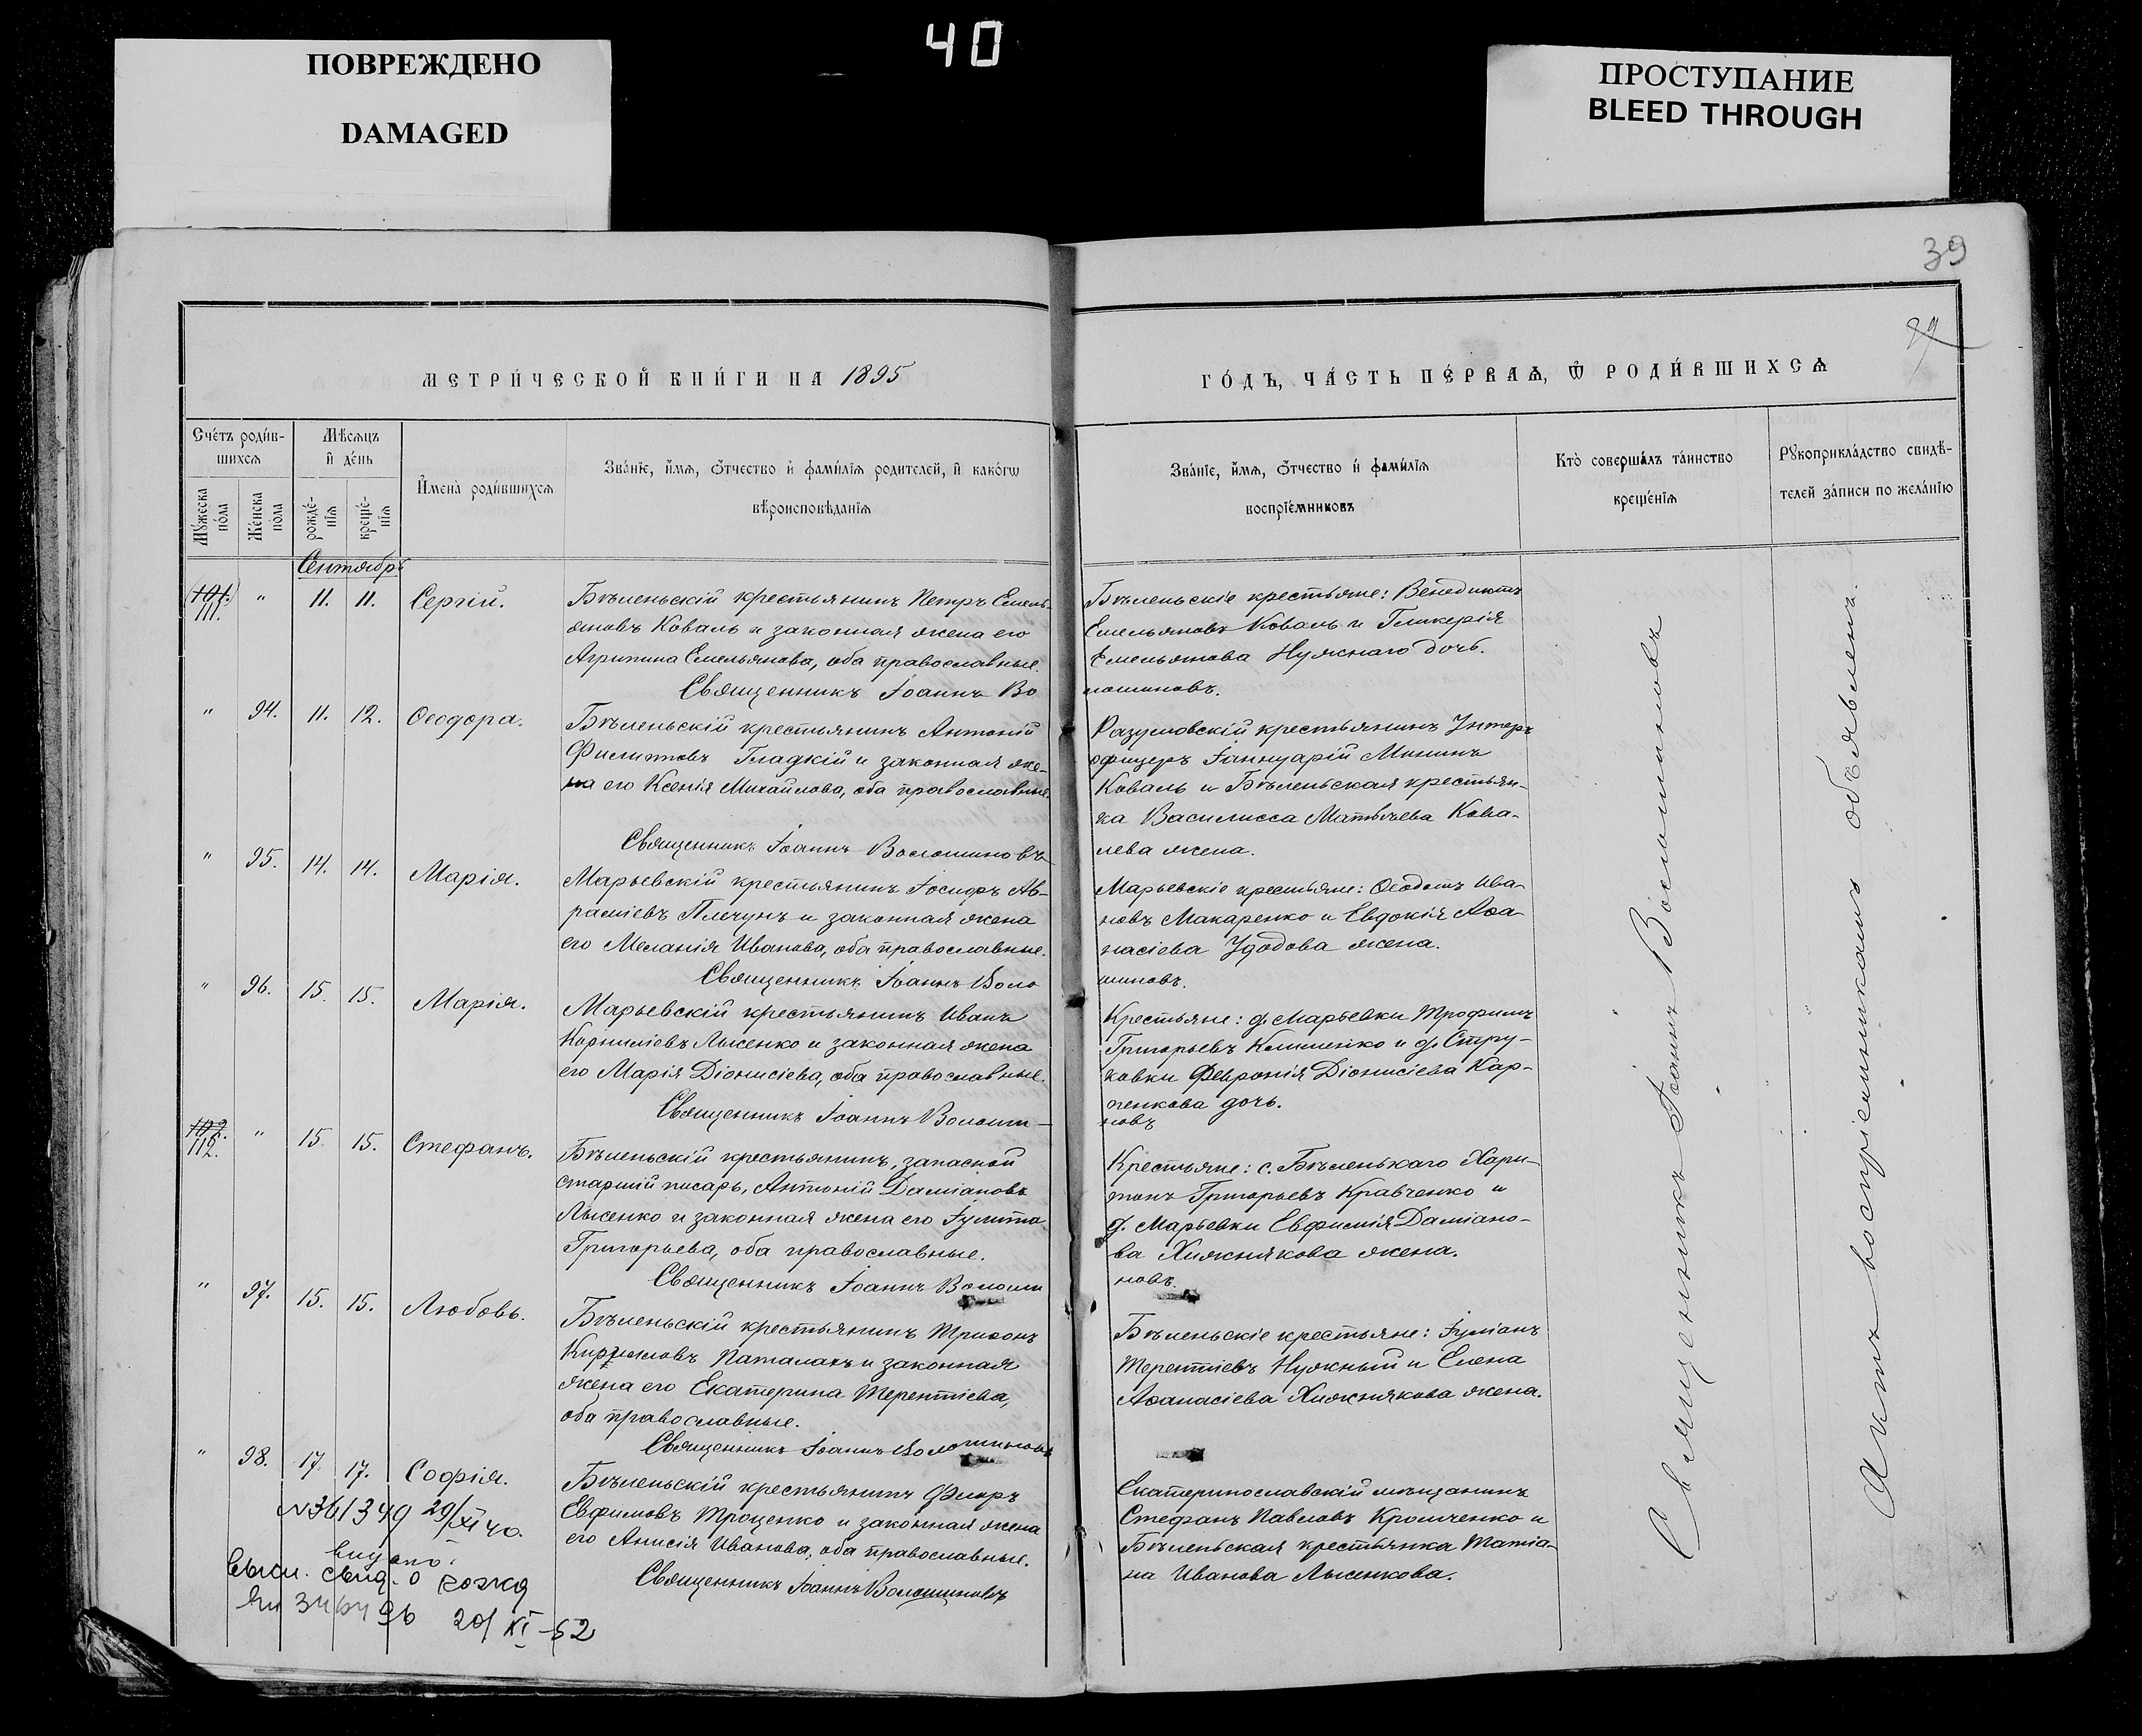 40
ПОВРЕЖДЕНО
DAMAGED
ПРОСТУПАНИЕ
BLEED THROUGH
39
39
МЕТРИ́ЧЕСКОЙ КНИ́ГИ НА 1895
ГО́ДЪ, ЧА́СТЬ ПЕ́РВАѦ, Ѿ РОДИ́ВШИХСѦ
Сче́тъ роди́в-
шихсѧ
Мѣ́сѧцъ
и҆ де́нь
Мꙋ́жеска по́ла
Же́нска по́ла
рожде́-
нїѧ
креще́-
нїѧ
И҆мена̀ роди́вшихсѧ
Зва́нїе, и҆́мѧ, ѻ҆́тчество и҆ фами́лїѧ родителей, и҆ како́гѡ
вѣ̑роисповѣ́данїѧ
Зва́нїе, и҆́мѧ, ѻ҆́тчество и҆ фами́лїѧ
воспрїе́мниковъ
Кто̀ соверша́лъ та́инство
креще́нїѧ
Рꙋкоприкла́дство свидѣ́-
телей за́писи по жела́нїю
Сентябрь
101.
111.
" 11. 11. Сергій.
Бѣленьскій крестьянинъ Петръ Емель-
яновъ Коваль и законная жена его
Агрипина Емельянова, оба православные.
Священникъ Іоаннъ Во
Бѣленьскіе крестьяне: Венедиктъ
Емельяновъ Коваль и Гликерія
Емельянова Нужнаго дочь.
лошиновъ.
" 94. 11. 12. Ѳеодора.
Бѣленьскій крестьянинъ Антоній
Филипповъ Гладкій и законная же-
на его Ксенія Михайлова, оба православные.
Священникъ Іоаннъ Волошиновъ
Разумовскій крестьянинъ Унтеръ
офицеръ Іаннуарій Мининъ
Коваль и Бѣленьская крестьян-
ка Василисса Матѳѣева Кова-
лева жена.
" 95. 14. 14. Марія.
Марьевскій крестьянинъ Іосифъ Ав-
раміевъ Плечунъ и законная жена
его Меланія Иванова, оба православные.
Священникъ Іоаннъ Воло
Марьевскіе крестьяне: Ѳеодотъ Ива-
новъ Макаренко и Евдокія Аѳа-
насіева Удодова жена.
шиновъ.
" 96. 15. 15. Марія.
Марьевскій крестьянинъ Иванъ
Корниліевъ Лысенко и законная жена
его Марія Діонисіева, оба православные.
Священникъ Іоаннъ Волоши-
Крестьяне: д. Марьевки Трофимъ
Григорьевъ Клименко и д. Стру-
ковки Февронія Діонисіева Кар-
пенкова дочь.
новъ
102.
112.
" 15. 15. Стефанъ.
Бѣленьскій крестьянинъ, запасной
старшій писарь, Антоній Даміановъ
Лысенко и законная жена его Іулитта
Григорьева, оба православные.
Священникъ Іоаннъ Волоши
Крестьяне: с. Бѣленькаго Хари-
тонъ Григорьевъ Кравченко и
д. Марьевки Евфимія Даміано-
ва Хижнякова жена.
новъ.
" 97. 15. 15. Любовь.
Бѣленьскій крестьянинъ Трифонъ
Кирилловъ Паталахъ и законная
жена его Екатерина Терентіева,
оба православные.
Священникъ Іоаннъ Волошиновъ
Бѣленьскіе крестьяне: Іуліанъ
Терентіевъ Нужный и Елена
Аѳанасіева Хижнякова жена.
" 98. 17. 17. Софія.
Бѣленьскій крестьянинъ Флоръ
Евфимовъ Троценко и законная жена
его Анисія Иванова, оба православные.
Священникъ Іоаннъ Волошиновъ
Екатеринославскій мѣщанинъ
Стефанъ Павловъ Кромченко и
Бѣленьская крестьянка Татіа-
на Иванова Лысенкова.
№361349 29/XI 40.
видано.
свид. о рожд
96 20/XI-52
Священникъ Іоаннъ Волошиновъ
Актъ воспріемникамъ объявленъ.